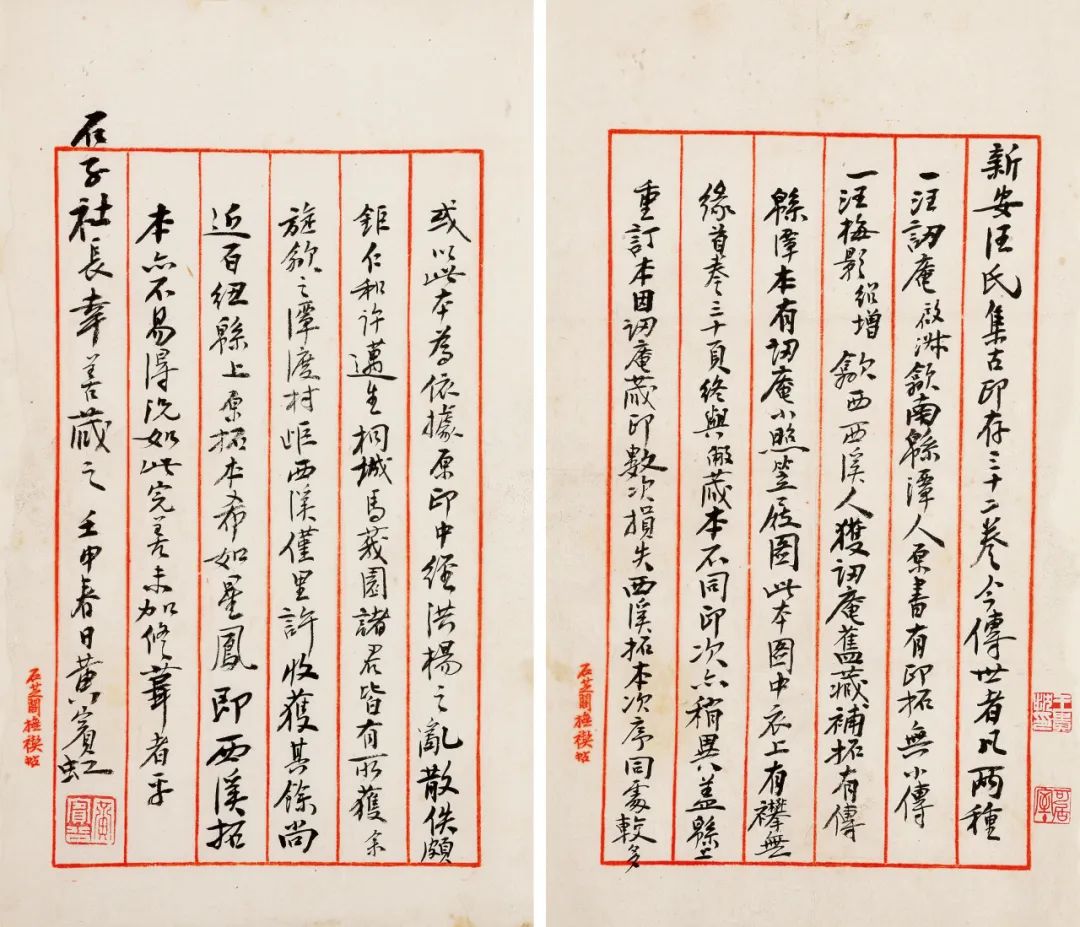 新安汪氏集古印存三十二卷今傳世者凡兩種
一汪訒庵啟淑歙南緜潭人原書有印拓無小傳
一汪梅影紹增歙西西溪人獲訒庵舊藏補拓有傳
緜潭本有訒庵小照笠屐圖此本圖中衣上有襻無
緣首卷三十頁終與敝藏本不同印次亦稍異蓋緜上
重訂本因訒庵藏印數次損失西溪拓本次序同處較多
石芝閣撫禊帖
或以此本為依據原印中經洪楊之亂散佚頗
鉅仁和許邁生桐城馬莪園諸君皆有所獲余
旋歙之潭渡村岠西溪僅里許收獲其餘尚
近百紐緜上原拓本希如星鳳即西溪拓
本亦不易得況如此完善未加修葺者乎
石子社長幸善藏之 壬申春日黃賓虹
石芝閣撫禊帖